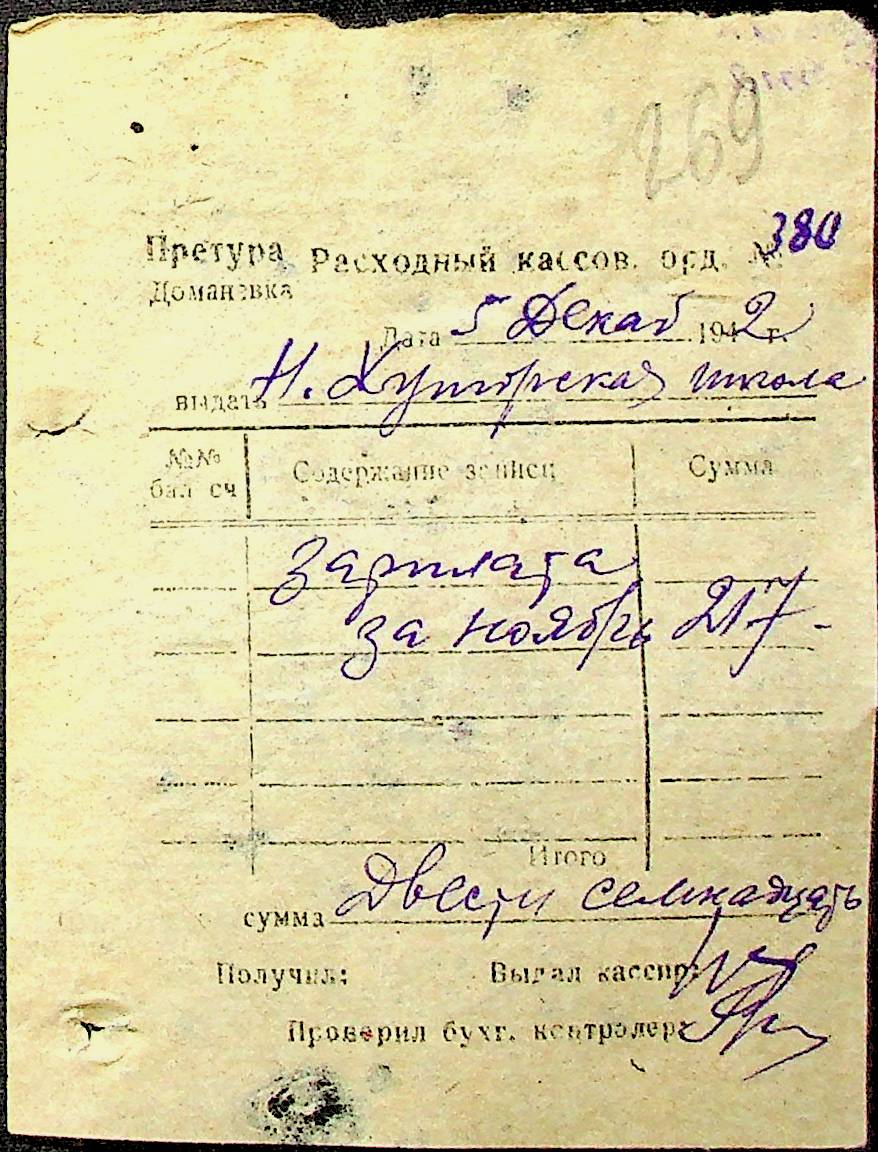 269
Претура Расходный кассов. орд. № 380
Домановка
Дата 5 Декаб 1942 г.
выдать Н. Хуторская школа
№№ бал сч Содержание записец Сумма
зарплата
за ноябрь 217-
Итого
сумма Двести семнадцать
Получил: Выдал кассир:
Проверил бухг. контролер: